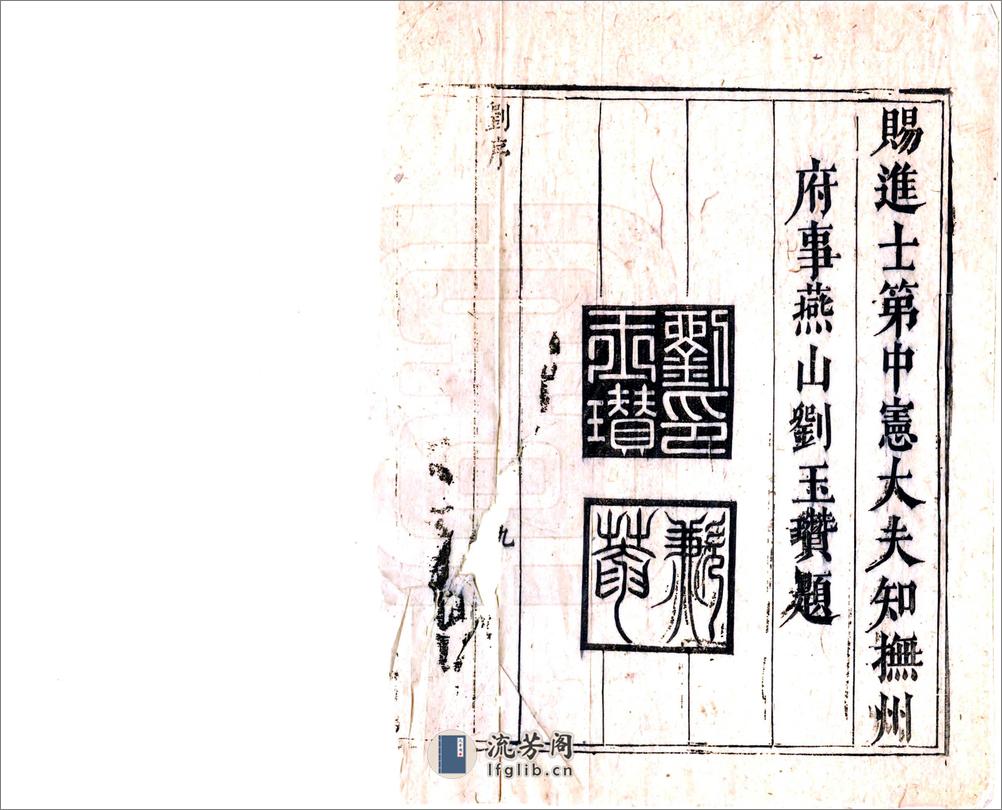 賜進士第中憲大夫知撫州
府事燕山劉玉瓚題
劉印
玉瓚
劉序
九
流芳阁
lfglib.cn